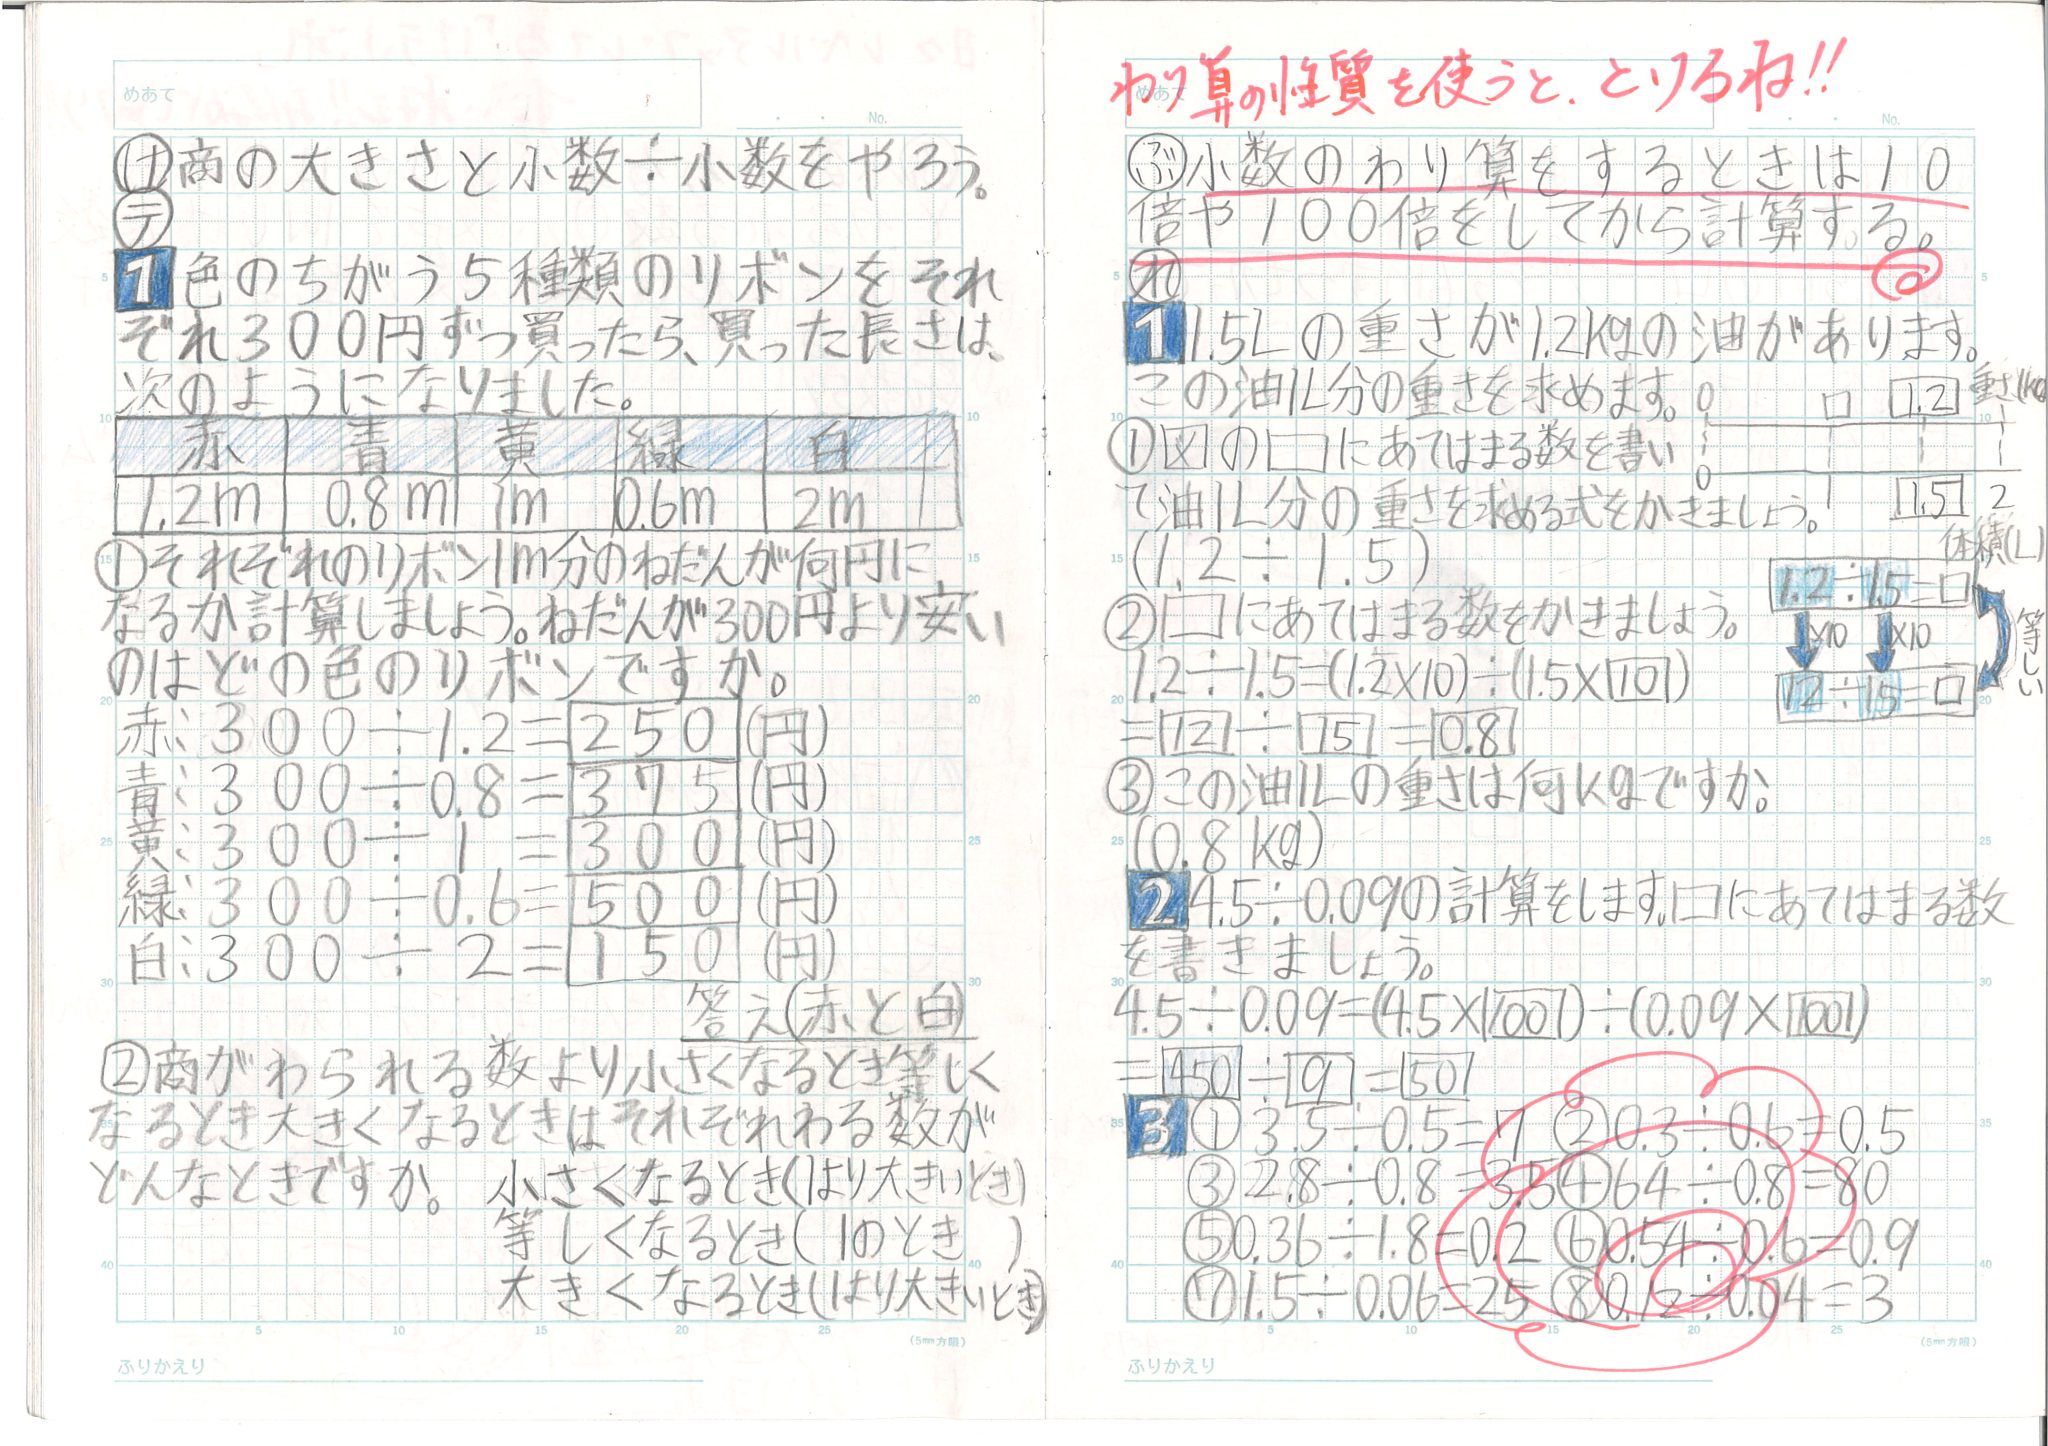 めあて
No.
㋘商の大きさと小数÷小数をやろう。
㋢
1 色のちがう5種類のリボンをそれ
ぞれ300円ずつ買ったら、買った長さは、
次のようになりました。
赤 青 黄 緑 白
1.2m 0.8m 1m 0.6m 2m
①それぞれのリボン1m分のねだんが何円に
なるか計算しましょう。ねだんが300円より安い
のはどの色のリボンですか。
赤:300÷1.2=250(円)
青:300÷0.8=375(円)
黄:300÷1=300(円)
緑:300÷0.6=500(円)
白:300÷2=150(円)
答え(赤と白)
②商がわられる数より小さくなるとき等しく
なるとき大きくなるときはそれぞれわる数が
どんなときですか。 小さくなるとき(1より大きいとき)
等しくなるとき(1のとき)
大きくなるとき(1より大きいとき)
5 10 15 20 25 (5mm方眼)
ふりかえり
わり算の性質を使うと、とけるね!!
めあて
No.
ぶ 小数のわり算をするときは10
倍や100倍をしてから計算する。
れ
1 1.5Lの重さが1.2kgの油があります。
この油1L分の重さを求めます。
0 □ 1.2 重さ(kg)
①図の□にあてはまる数を書い
て油1L分の重さを求める式をかきましょう。
0 1 1.5 2
体積(L)
(1.2÷1.5)
1.2÷1.5=□
×10 ×10 等しい
12÷15=□
②□にあてはまる数をかきましょう。
1.2÷1.5=(1.2×10)÷(1.5×10)
=12÷15=0.8
③この油1Lの重さは何kgですか。
(0.8kg)
2 4.5÷0.09の計算をします。□にあてはまる数
を書きましょう。
4.5÷0.09=(4.5×100)÷(0.09×100)
=450÷9=50
3 ①3.5÷0.5=7 ②0.3÷0.6=0.5
③2.8÷0.8=3.5 ④64÷0.8=80
⑤0.36÷1.8=0.2 ⑥0.54÷0.6=0.9
⑦1.5÷0.06=25 ⑧0.12÷0.04=3
5 10 15 20 25 (5mm方眼)
ふりかえり